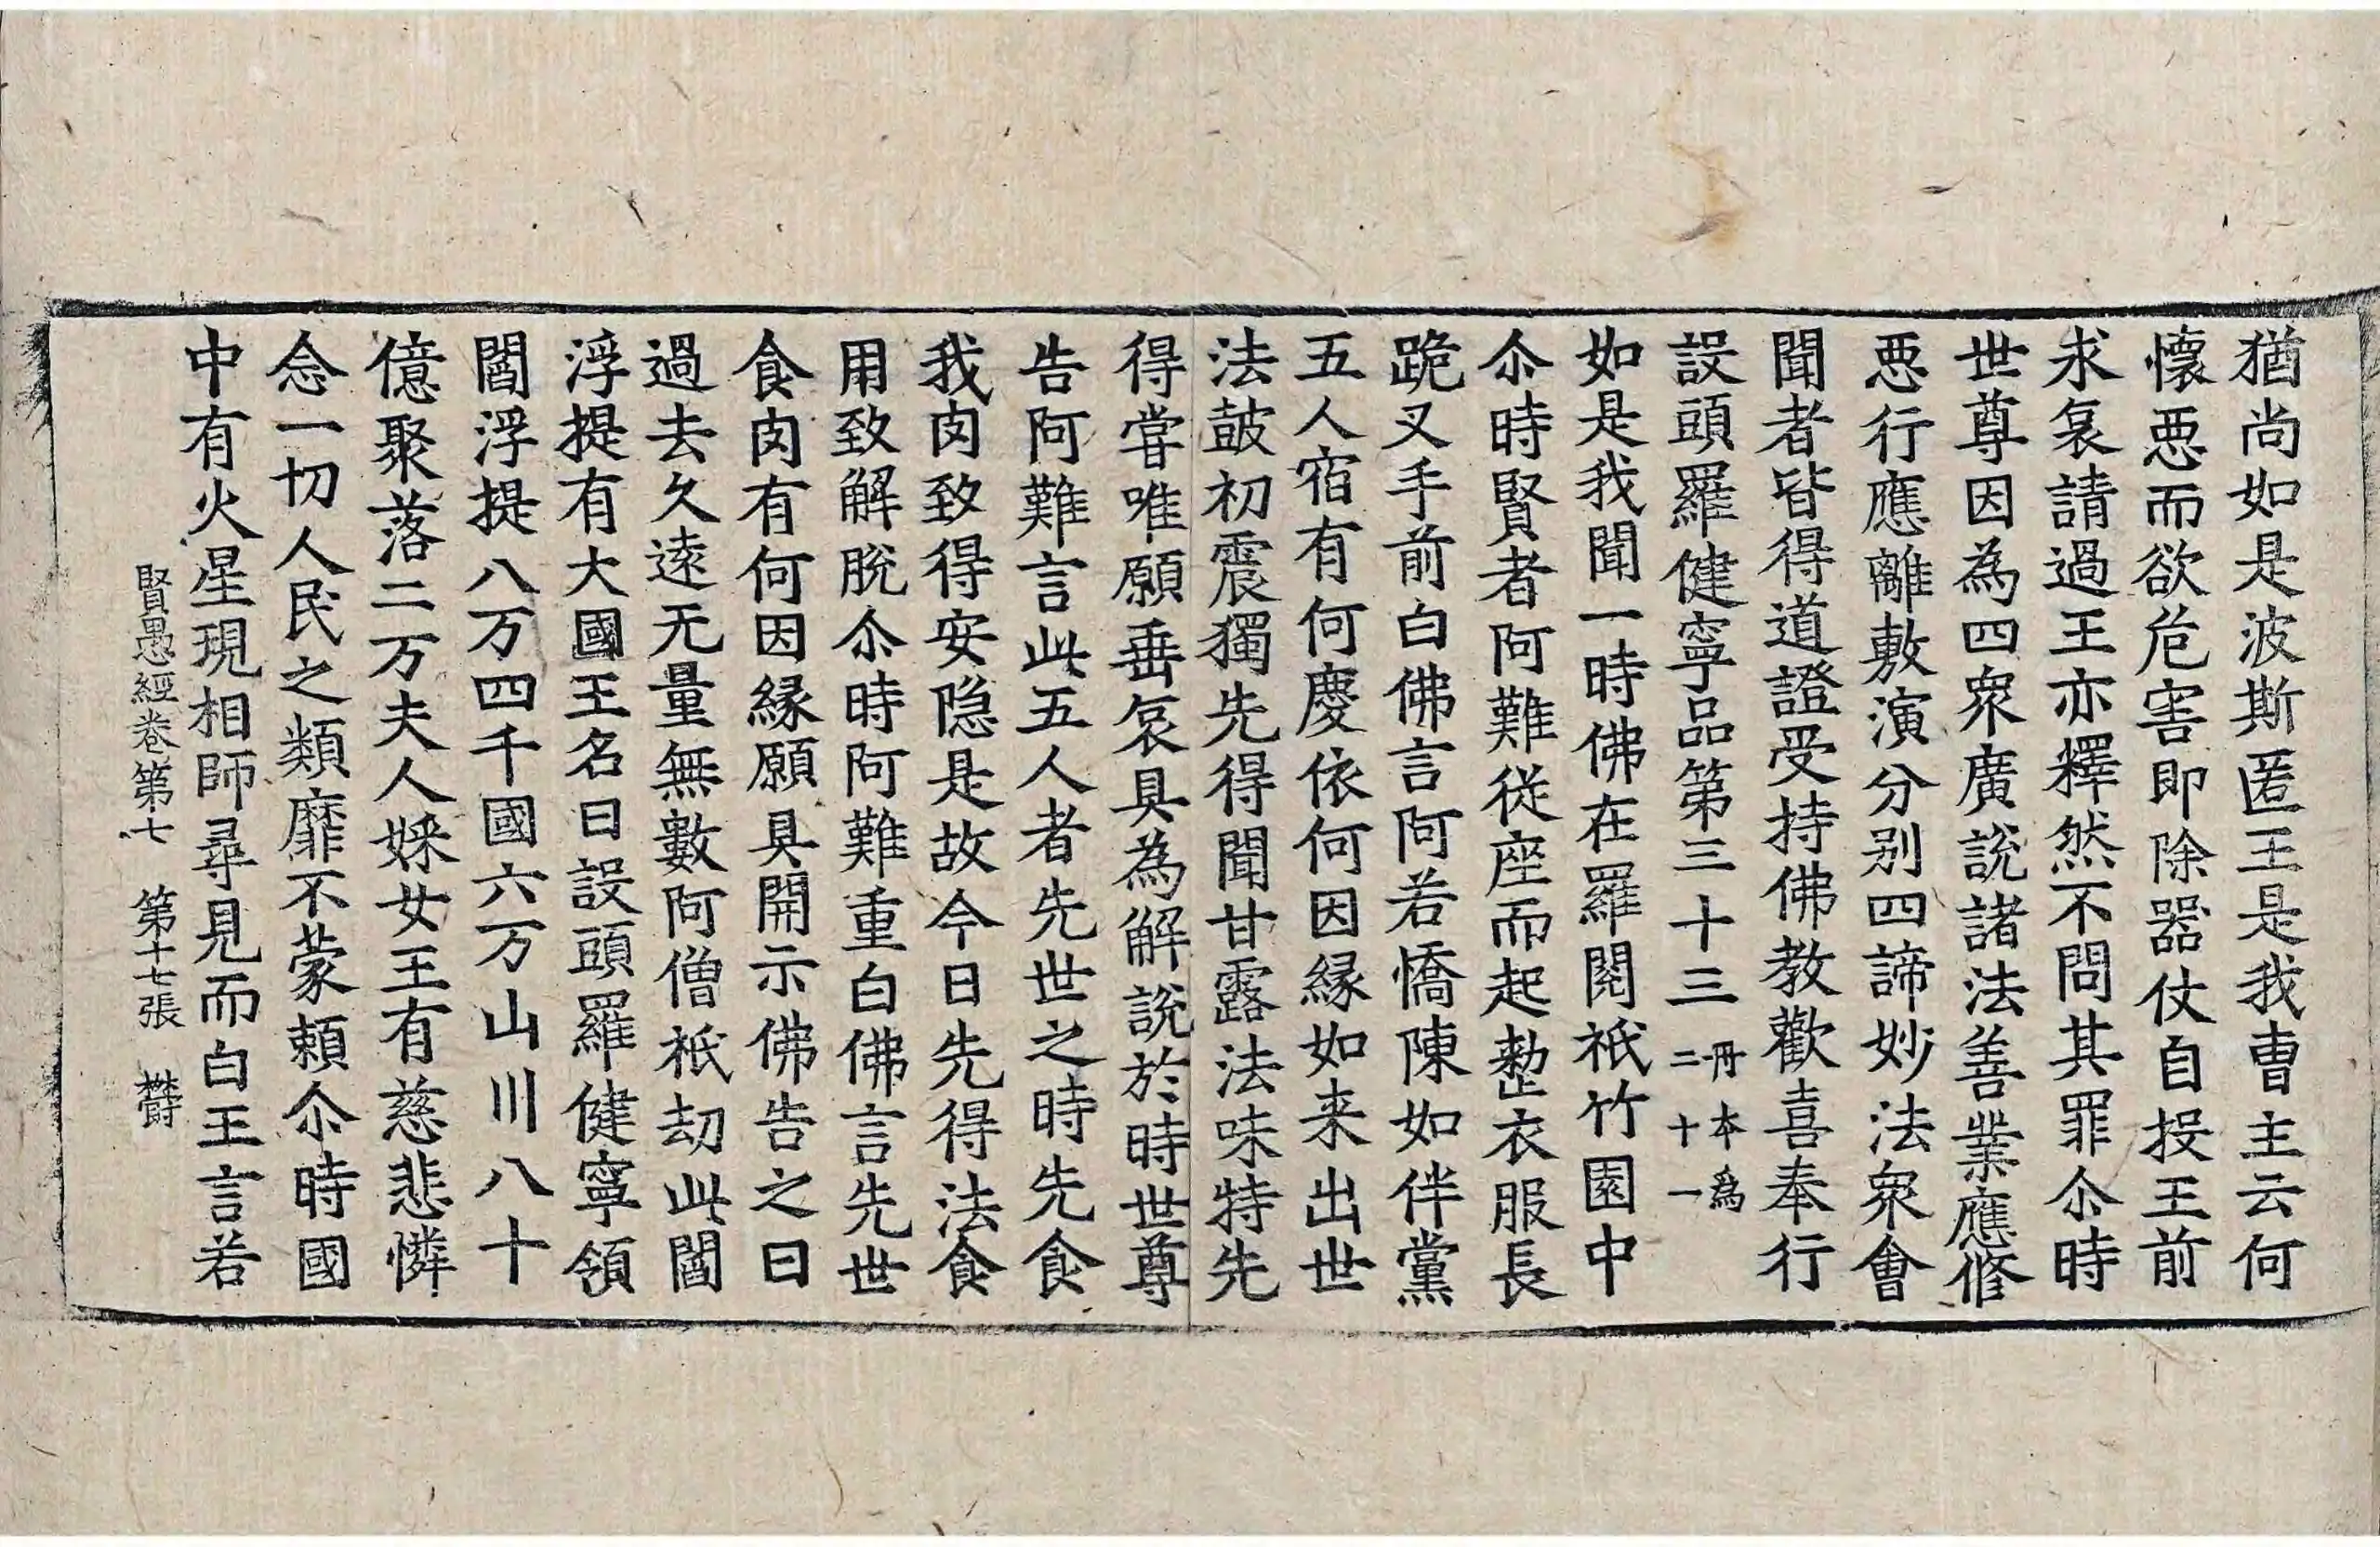 猶尚如是波斯匿王是我曹主云何
懷惡而欲危害即除器仗自投王前
求哀請過王亦釋然不問其罪尒時
世尊因為四衆廣說諸法善業應修
惡行應離敷演分別四諦妙法衆會
聞者皆得道證受持佛教歡喜奉行
設頭羅健寧品第三十三 丹本為二十一
如是我聞一時佛在羅閱祇竹園中
尒時賢者阿難從座而起整衣服長
跪叉手前白佛言阿若憍陳如伴黨
五人宿有何慶依何因緣如来出世
法鼓初震獨先得聞甘露法味特先
得甞唯願垂哀具為解說於時世尊
告阿難言此五人者先世之時先食
我肉致得安隱是故今日先得法食
用致解脫尒時阿難重白佛言先世
食肉有何因緣願具開示佛告之曰
過去久遠无量無數阿僧祇劫此閻
浮提有大國王名曰設頭羅健寧領
閻浮提八万四千國六万山川八十
億聚落二万夫人婇女王有慈悲憐
念一切人民之類靡不蒙賴尒時國
中有火星現相師尋見而白王言若
賢愚經卷第七 第十七張 欝